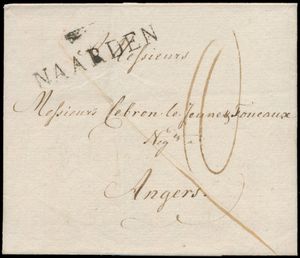 NAARDEN
Messieurs
Messieurs Lebron le Jeune & Foucaux
Neg.ts
10
Angers.